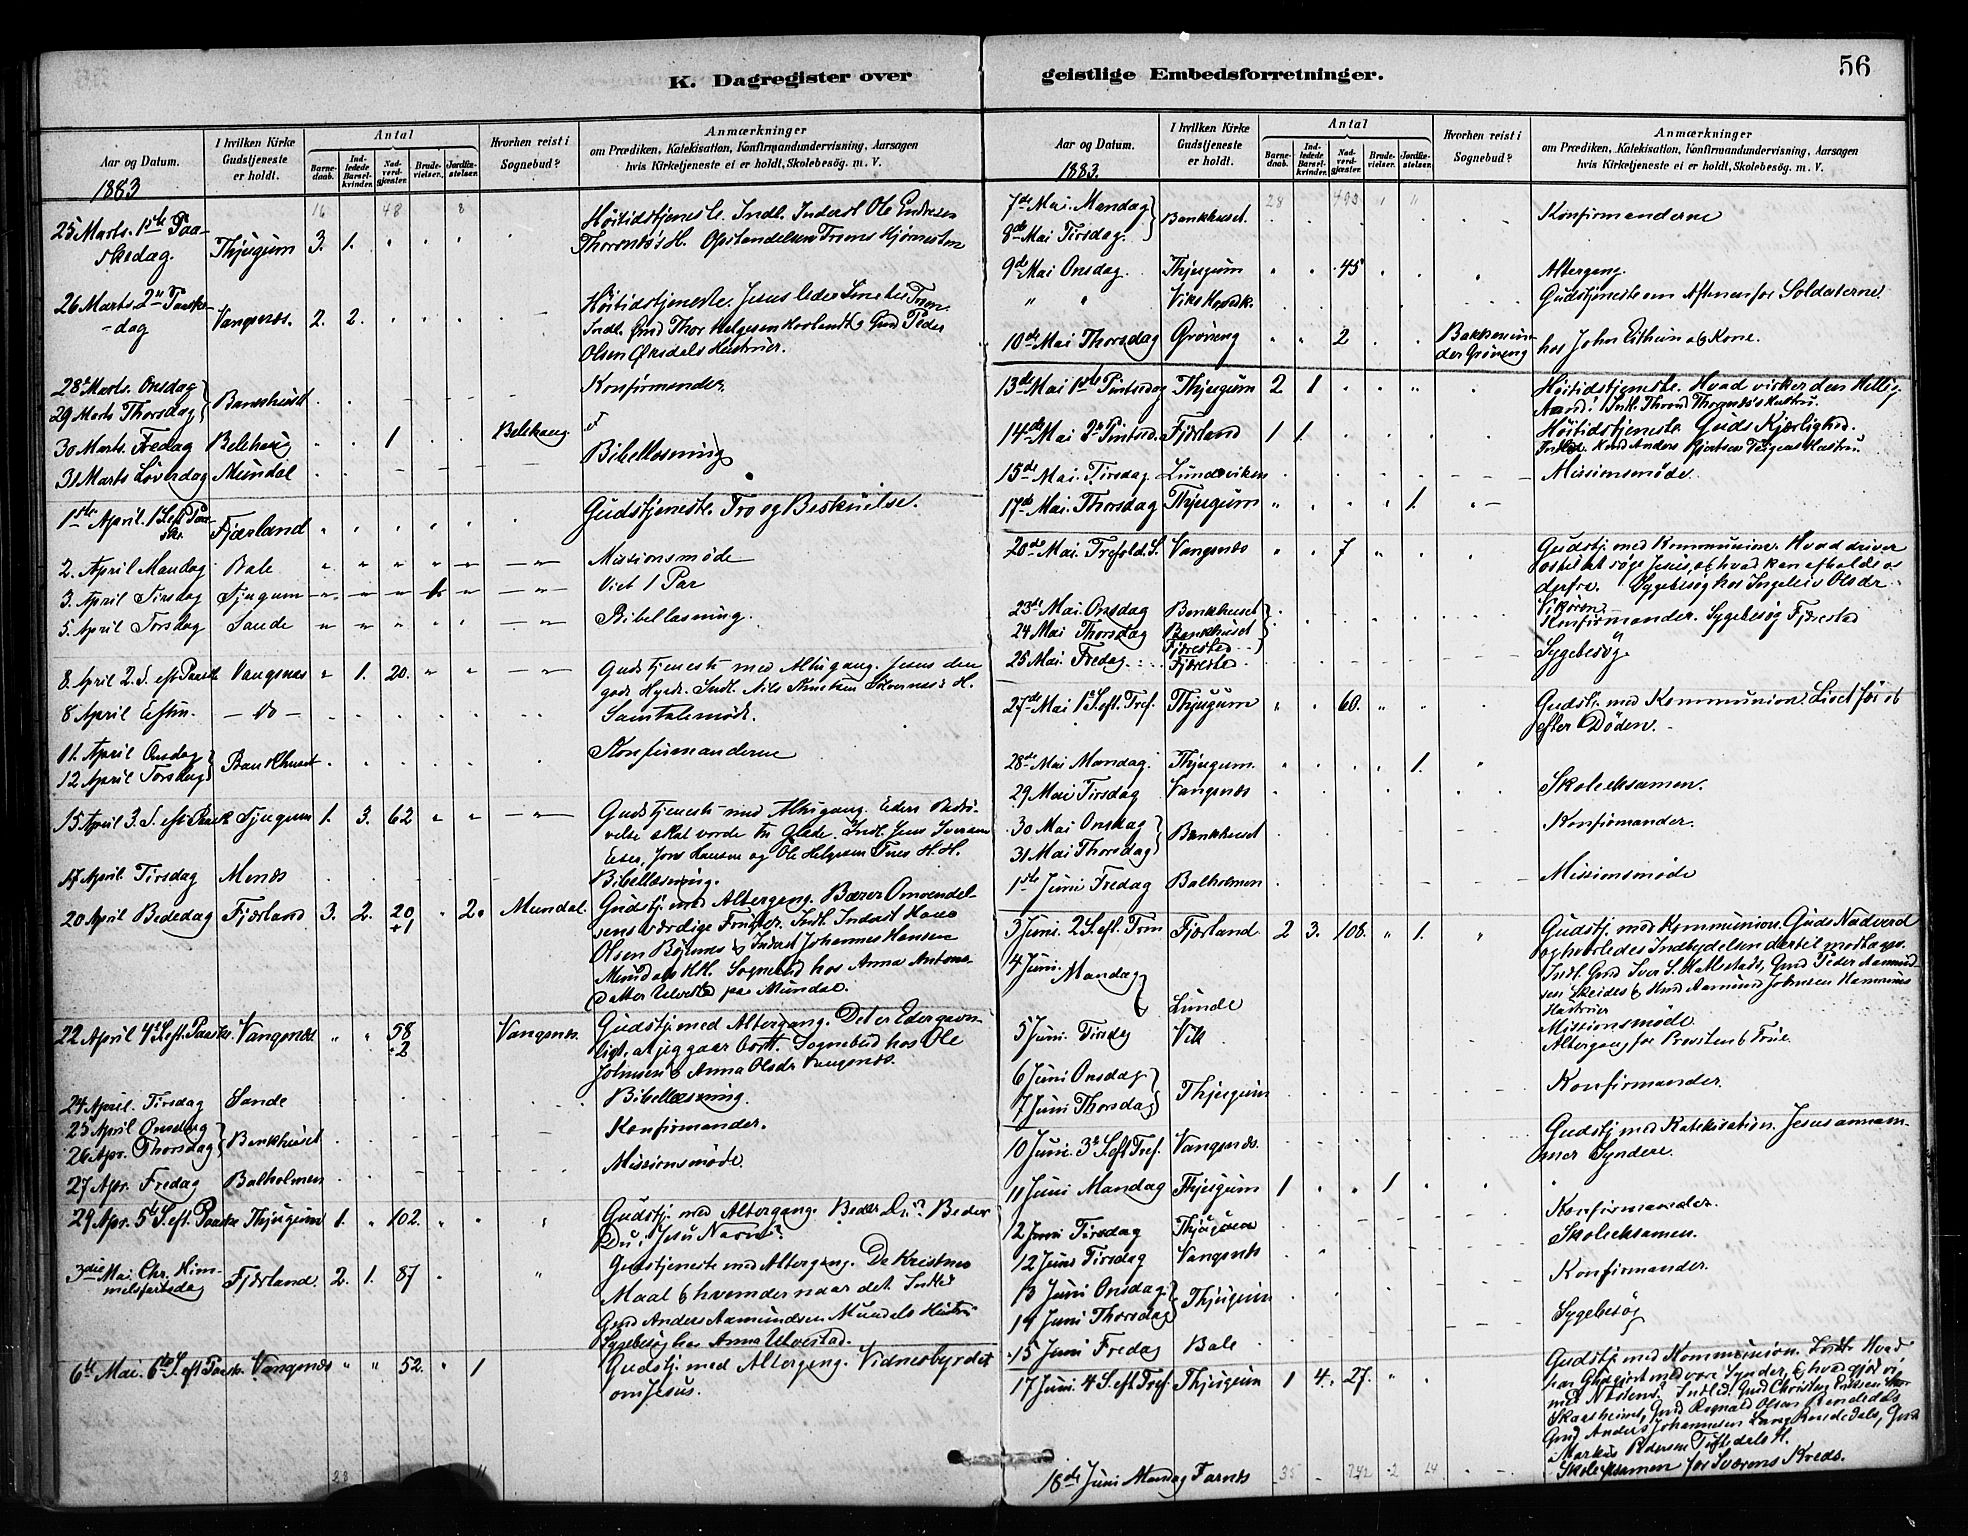 K. Dagregister over
geistlige Embedsforretninger.
56
Aar og Datum.
I hvilken Kirke
Gudstjeneste
er holdt.
Antal
Barne-
daab.
Ind-
ledede
Barsel-
kvinder.
Nad-
verd-
gjæster.
Brude-
vielser.
Jordfæ-
stelser.
Hvorhen reist i
Sognebud?
Anmærkninger
om Prædiken, Katekisation, Konfirmandundervisning, Aarsagen
hvis Kirketjeneste ei er holdt, Skolebesøg. m. V.
1883
16 48 8
25 Marts. 1ste Paa- Thjugum 3. 1. Høitidstjeneste. Indl. Inderst Ole Endresen
skedag. Thorsnæs's H. Opstandelsen Troens Hjørnesten
26 Marts. 2den Paaske- Vangsnæs. 2. 2. Høitidstjeneste. Jesus leder
-dag Indl. Gmd Thor Helgesen
Olsen Hustruer.
28 Marts. Onsdag Konfirmander.
29 Marts Thorsdag Bankhuset
30 Marts. Fredag 1
31 Marts Løverdag Mundal Bibellæsning
1ste April. 1 S. eft Paa- Fjærland Gudstjeneste. Tro og Beskuelse.
ske.
2. April Mandag Bale Missionsmøde
3. April Tirsdag Tjugum Viet 1 Par
5. April Torsdag Sande Bibellæsning.
8. April 2. S. eft Paask Vangsnæs 1. 20. Gudstjeneste med Altergang. Jesus den
gode Hyrde. Indl. Nils H.
8 April Eftm. — Do — Samtalemøde.
11. April Onsdag Konfirmanderne
12 April Torsdag Bankhuset
15 April 3. S. eft Paask Tjugum 1. 3. 62 Gudstjeneste med Altergang. Eders Bedrø-
velse skal vorde til Glæde. Indl. Jens Iversen
Eser, Jons Hansen og Ole Helgesen H. H.
17 April. Tirsdag Menæs Bibellæsning.
20 April Bededag Fjærland 3. 2. 20 2. Mundal Gudstj. med Altergang. Bærer Omvendel-
+1 sens værdige Frugter. Indl. Inderst Hans
Olsen Bøyums & Inderst Johannes Hansen
Mundals HH. Sognebud hos Anna Antons-
Datter Ulvestad paa Mundal.
22 April 4de S. eft. Paaske. Vangsnæs 58 Vangsnæs. Gudstj. med Altergang. Det er Eder gavn-
+2 ligt, at jeg gaar bort. Sognebud hos Ole
Johnsen & Anna Olsdr Vangsnæs.
24 April. Tirsdag Sande Bibellæsning.
25 April Onsdag Konfirmander.
26 Apr. Thorsdag Bankhuset
27 Apr. Fredag Balholmen Missionsmøde.
29 Apr. 5te S. eft. Paaske Thjugum 1. 102. Gudstj. med Altergang. Beder Du? Beder
Du i Jesu Navn?
3die Mai. Chr. Him- Fjærland. 2. 1. 87 Gudstjeneste med Altergang. De Kristnes
melfartsdag Maal & hvem der naar det. Indled.
Gmd Anders Aamundsen Mundals Hustru
Sygebesøg hos Anna Ulvestad.
6te Mai. 6te S. eft Paask. Vangsnæs 52. 1 Gudstj. med Altergang. Vidnesbyrdet
om Jesus.
28 11
Aar og Datum.
I hvilken Kirke
Gudstjeneste
er holdt.
Antal
Barne-
daab.
Ind-
ledede
Barsel-
kvinder.
Nad-
verd-
gjæster.
Brude-
vielser.
Jordfæ-
stelser.
Hvorhen reist i
Sognebud?
Anmærkninger
om Prædiken, Katekisation, Konfirmandundervisning, Aarsagen
hvis Kirketjeneste ei er holdt, Skolebesøg. m. V.
1883.
7de Mai. Mandag Bankhuset. 28 Konfirmanderne
8de Mai Tirsdag.
9de Mai Onsdag. Thjugum 45 Altergang.
" " Gudstjeneste om Aftenen for Soldaterne.
10de Mai Thorsdag Grøneng 2 Bakken un- hos John Eithun og Kone.
der Grøneng
13de Mai 1ste Pintsedag Thjugum 2 1 Høitidstjeneste. Hvad virker den Hellig
Aand? Indl. Thrond Thorsnæs's Hustru.
14de Mai 2den Pintsed. Fjærland 1 1. Høitidstjeneste. Guds Kjærlighed.
Hustru
15de Mai. Tirsdag Lundeviken Missionsmøde.
17de Mai. Thorsdag Thjugum 1.
20de Mai. Trefold. S. Vangsnæs 7 Gudstj. med Kommunion. Hvad driver
os til at søge Jesus, og hvad kan afholde os
derfra. Sygebesøg hos Ingeleiv Olsdr.
Vikøren.
23de Mai. Onsdag Bankhuset Konfirmander. Sygebesøg Fjærestad
24 Mai Thorsdag Bankhuset
Fjærestad
25 Mai. Fredag Fjærestad Sygebesøg.
27de Mai 1ste S. eft. Tref. Thjugum 60. Gudstj. med Kommunion. Livet før og
efter Døden.
28de Mai Mandag. Thjugum. 1.
29 Mai Tirsdag Vangsnæs Skoleeksamen.
30 Mai Onsdag Bankhuset Konfirmander.
31 Mai Thorsdag
1ste Juni Fredag Balholmen Missionsmøde
3 Juni. 2 S. eft. Trin Fjærland 2 3. 108. 1. Gudstj. med Kommunion. Guds Nadverd
og hvorledes Indbydelsen dertil modtages.
4 Juni. Mandag Indl. Gmd Iver S. Gmd Peder Aamund-
sen Skeides & Hmd Aamund Johnsen
Hustruer
Lunde Missionsmøde.
5 Juni. Tirsdag Vik Altergang for Provsten & Frue.
6 Juni Onsdag Thjugum Konfirmander.
7 Juni Thorsdag
10 Juni. 3de S. eft Tref. Vangsnæs. Gudstj. med Katekisation. Jesus annam-
mer Syndere.
11 Juni Mandag Thjugum 1 1
12 Juni Tirsdag Thjugum Konfirmander.
12 Juni Tirsdag Vangsnæs Skoleeksamen.
13 Juni Onsdag Thjugum Konfirmander.
14 Juni Thorsdag
15 Juni Fredag Bale Sygebesøg
17 Juni. 4 S. eft Tref. Thjugum 1 4. 27. Gudstj. med Kommunion. Hvad
har Gud gjort med vore Synder, & hvad gjør vi
med Næstens? Indled. Gmd Christen Eriksen
Gmd Rognald Olsen
Gmd Anders Johannesen Gmd
Markus Pedersen H.
18de Juni Mandag Farnæs 35 242 2 14 Skoleeksamen for Sværens Kreds.